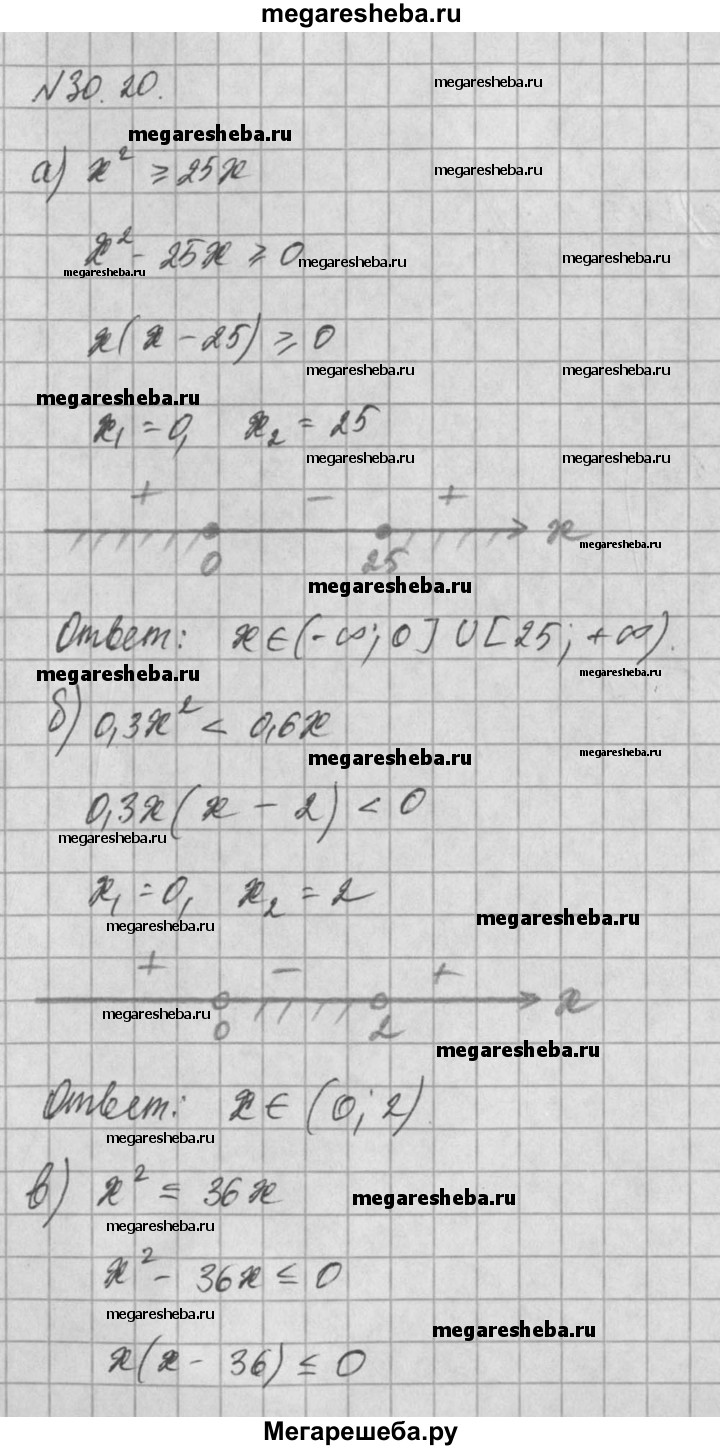 megaresheba.ru
№30.20.
megaresheba.ru
megaresheba.ru
а) x² ≥ 25x
megaresheba.ru
x² - 25x ≥ 0
megaresheba.ru
megaresheba.ru
megaresheba.ru
x(x - 25) ≥ 0
megaresheba.ru
megaresheba.ru
megaresheba.ru
x₁ = 0, x₂ = 25
megaresheba.ru
megaresheba.ru
+ - +
0 25 x
megaresheba.ru
megaresheba.ru
Ответ: x ∈ (-∞; 0] ∪ [25; +∞).
megaresheba.ru
megaresheba.ru
б) 0,3x² < 0,6x
megaresheba.ru
megaresheba.ru
0,3x(x - 2) < 0
megaresheba.ru
x₁ = 0, x₂ = 2
megaresheba.ru
megaresheba.ru
+ - +
0 2 x
megaresheba.ru
megaresheba.ru
Ответ: x ∈ (0; 2)
megaresheba.ru
в) x² ≤ 36x
megaresheba.ru
megaresheba.ru
x² - 36x ≤ 0
megaresheba.ru
megaresheba.ru
x(x - 36) ≤ 0
Мегарешеба.ру